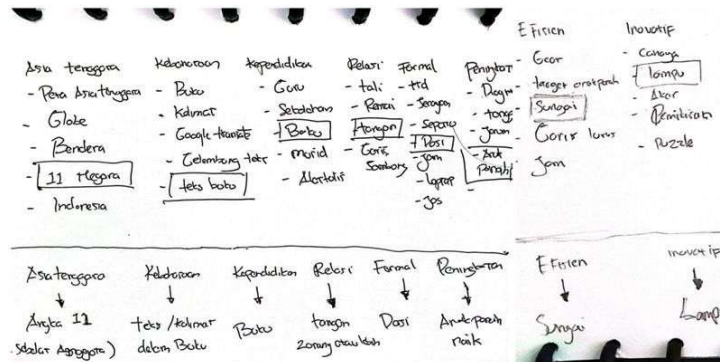 Asia tenggara
- Peta Asia tenggara
- Globe
- Bendera
- 11 Negara
- Indonesia
Kebahasaan
- Buku
- Kalimat
- Google translate
- Gelombang teks
- teks buku
Kependidikan
- Guru
- Sekolahan
- Buku
- murid
- Alat tulis
Relasi
- tali
- Rantai
- tangan
- Garis Sambung
Formal
- ttd
- Seragam
- Sepatu
- Dasi
- Jam
- laptop
- Jas
- tangga
EFisien
- Gear
- target
Sungai
- Garis lurus
Jam
Inovatif
- Cahaya
- lampu
- Akar
- Pemikiran
- Puzzle
Asia tenggara
Angka 11
Kebahasaan
teks / kalimat
dalam Buku
Kependidikan
Buku
Relasi
tangan
2 orang
Formal
Dasi
Peningkatan
naik
EFisien
Sungai
inovatif
Lampu